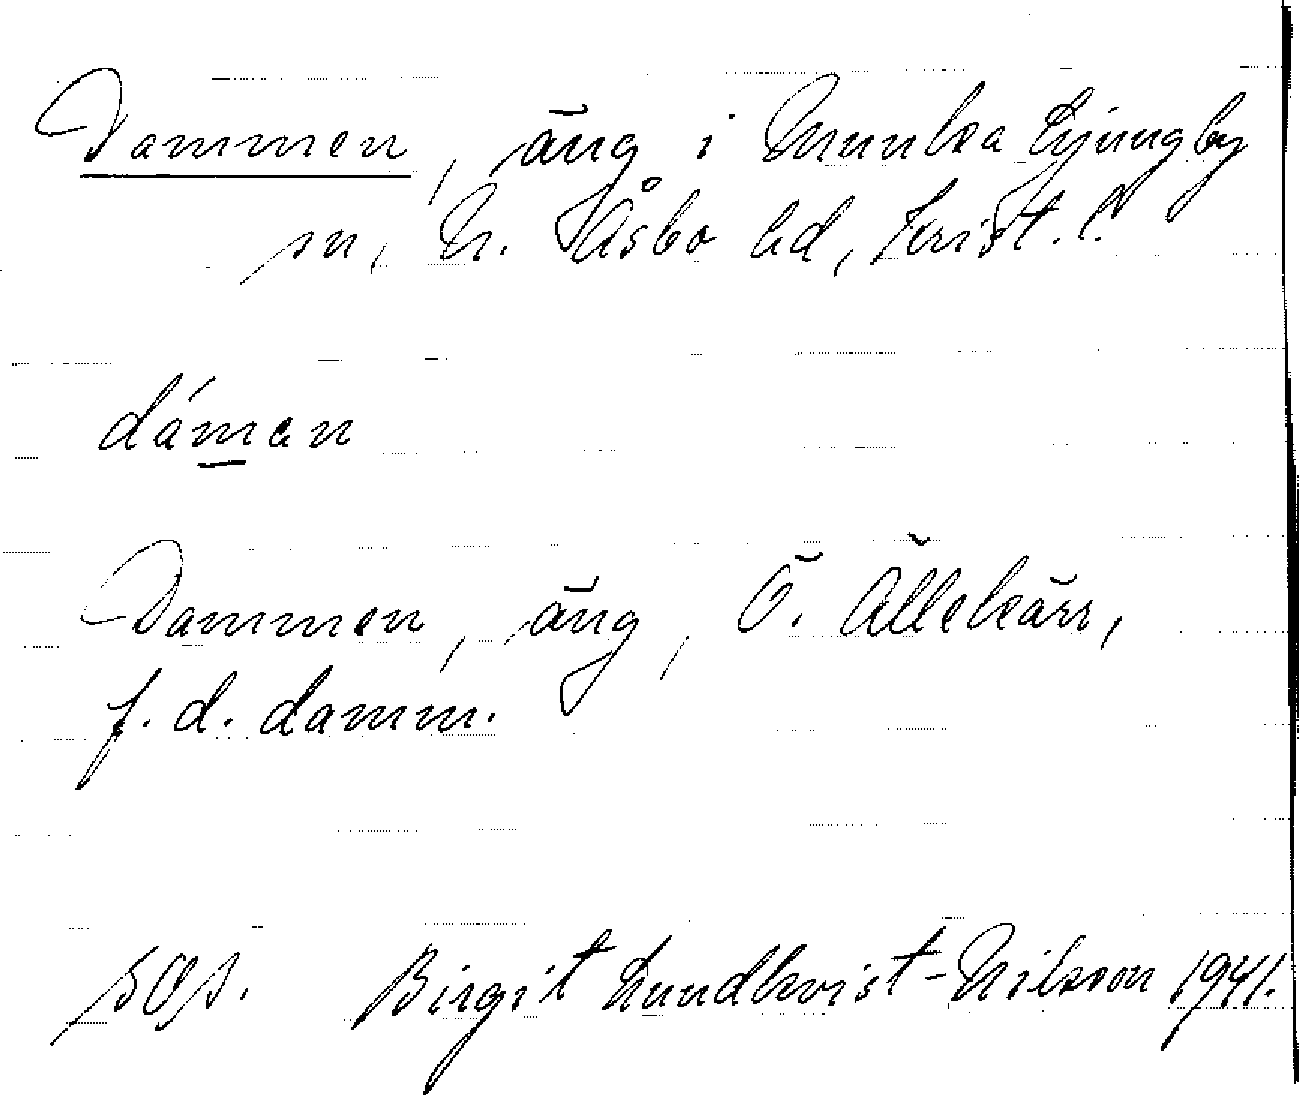 Dammen, äng i Munka Ljungby
sn, N. Åsbo hd, Krist. l.
dáman
Dammen, äng, Ö. Ällekärr,
f. d. damm.
Birgit Lundkvist-Nilsson 1941.